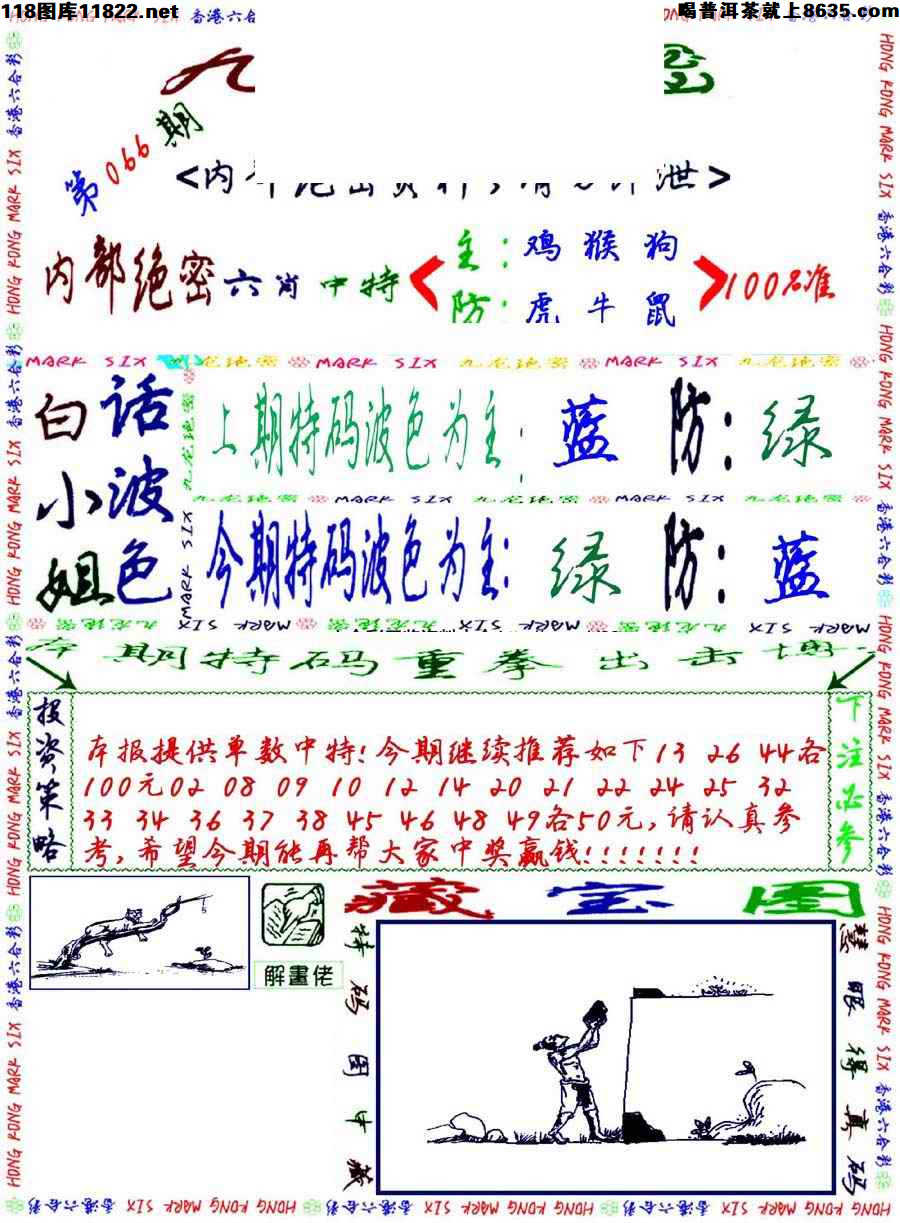 118图库11822.net
喝普洱茶就上8635.com
第066期
内部绝密六肖中特
主:鸡猴狗
防:虎牛鼠
100%准
MARK SIX 九龙绝密 MARK SIX 九龙绝密 MARK SIX 九龙绝密
白话小波姐色
上期特码波色为主:蓝 防:绿
九龙绝密 MARK SIX 九龙绝密 MARK SIX
今期特码波色为主:绿 防:蓝
期特码重拳出击
投资策略
本报提供单数中特!今期继续推荐如下13 26 44各
100元02 08 09 10 12 14 20 21 22 24 25 32
33 34 36 37 38 45 46 48 49各50元,请认真参
考,希望今期能再帮大家中奖赢钱!!!!!!!
下注必参
解畫佬
藏宝图
特码图中藏
慧眼得真码
HONG KONG MARK SIX 香港六合彩